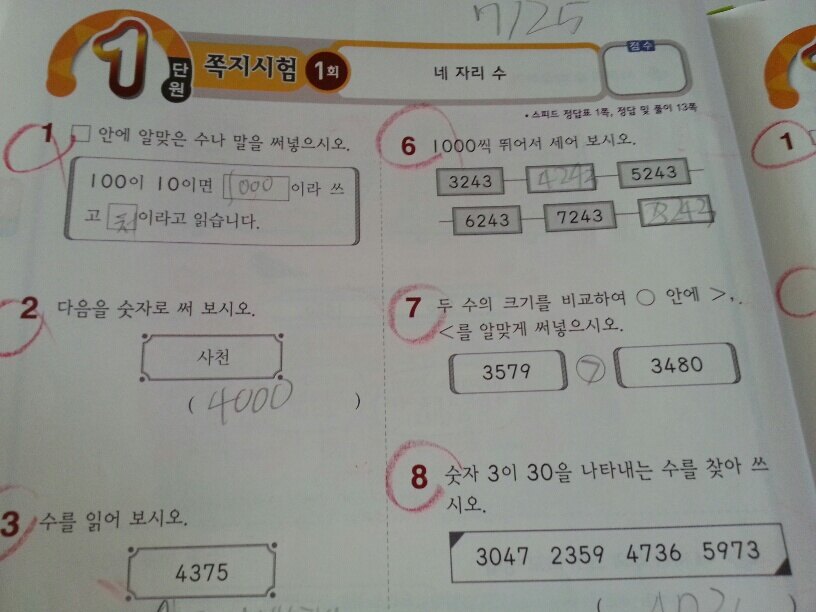 7/25
1 단원 쪽지시험 1회
네 자리 수
점수
• 스피드 정답표 1쪽, 정답 및 풀이 13쪽
1 □ 안에 알맞은 수나 말을 써넣으시오.
100이 10이면 1000 이라 쓰
고 천 이라고 읽습니다.
2 다음을 숫자로 써 보시오.
사천
( 4000 )
3 수를 읽어 보시오.
4375
6 1000씩 뛰어서 세어 보시오.
3243 4243 5243
6243 7243 8243
7 두 수의 크기를 비교하여 ○ 안에 >,
<를 알맞게 써넣으시오.
3579 > 3480
8 숫자 3이 30을 나타내는 수를 찾아 쓰
시오.
3047 2359 4736 5973
1